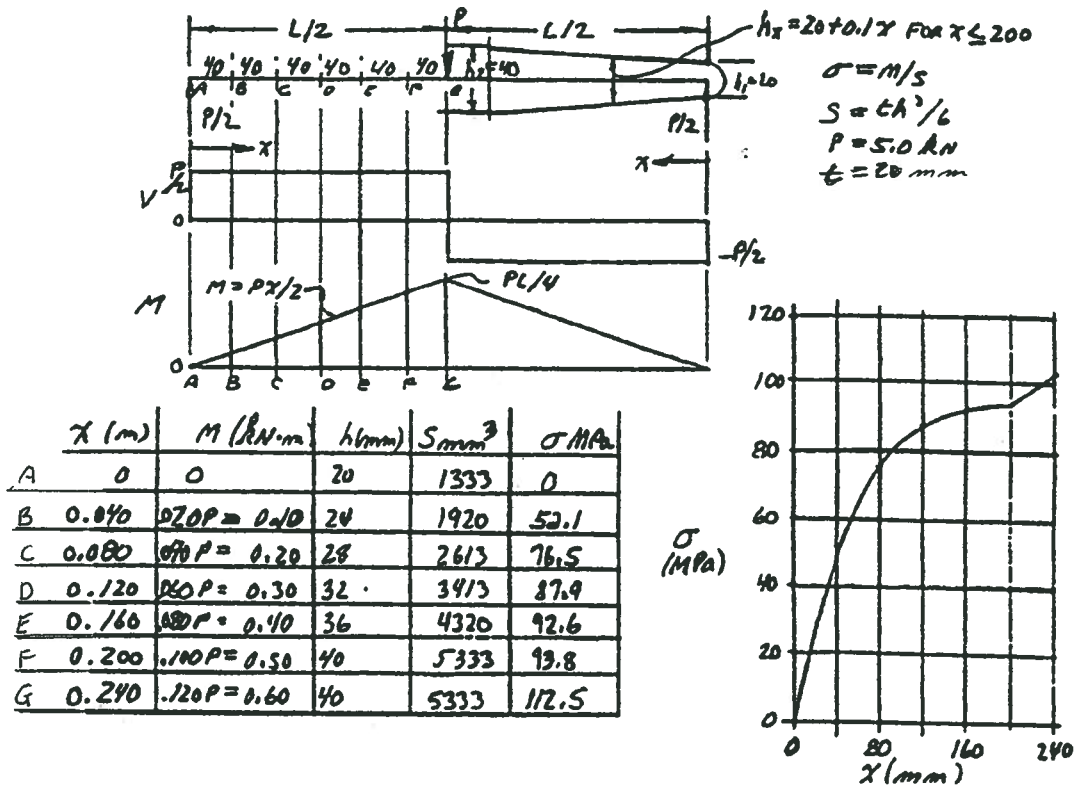 L/2 P L/2
hx = 20 + 0.1x FOR x ≤ 200
40 40 40 40 40 40 h2=40
A B C D E F G
h1=20
σ = M/S
S = th²/6
P = 5.0 kN
t = 20 mm
P/2 P/2
x x
P/2
V
0
-P/2
M = Px/2 PL/4
M
0
A B C D E F G
x (m) M (kN·m) h(mm) S mm³ σ MPa
A 0 0 20 1333 0
B 0.040 .020P = 0.10 24 1920 52.1
C 0.080 .040P = 0.20 28 2613 76.5
D 0.120 .060P = 0.30 32 3413 87.9
E 0.160 .080P = 0.40 36 4320 92.6
F 0.200 .100P = 0.50 40 5333 93.8
G 0.240 .120P = 0.60 40 5333 112.5
120
100
80
60
40
20
0
σ
(MPa)
0 80 160 240
x (mm)